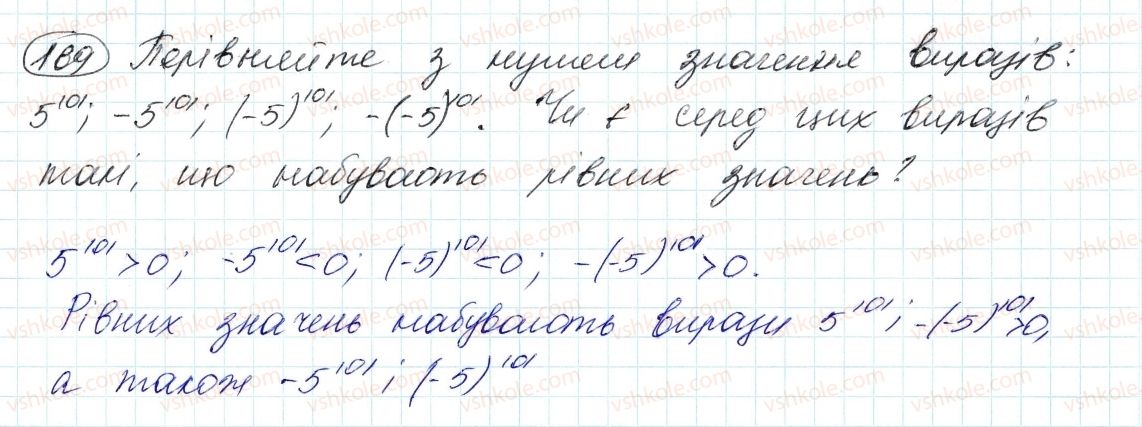 169 Порівняйте з нулем значення виразів:
5¹⁰¹; -5¹⁰¹; (-5)¹⁰¹; -(-5)¹⁰¹. Чи є серед цих виразів
такі, що набувають рівних значень?
5¹⁰¹>0; -5¹⁰¹<0; (-5)¹⁰¹<0; -(-5)¹⁰¹>0.
Рівних значень набувають вирази 5¹⁰¹; -(-5)¹⁰¹>0,
а також -5¹⁰¹ і (-5)¹⁰¹